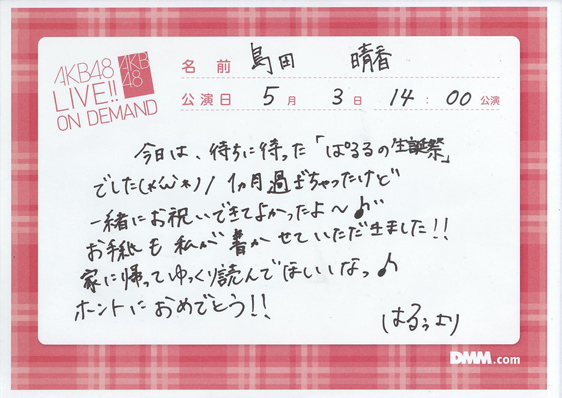 AKB48
LIVE!!
ON DEMAND
AKB
48
名前 島田 晴香
公演日 5月 3日 14:00 公演
今日は、待ちに待った「ぱるるの生誕祭」
でした(*´ω`*)ノ 1ヵ月過ぎちゃったけど
一緒にお祝いできてよかったよ〜♪
お手紙も私が書かせていただきました!!
家に帰ってゆっくり読んでほしいなっ♪
ホントにおめでとう!!
はるぅより
DMM.com